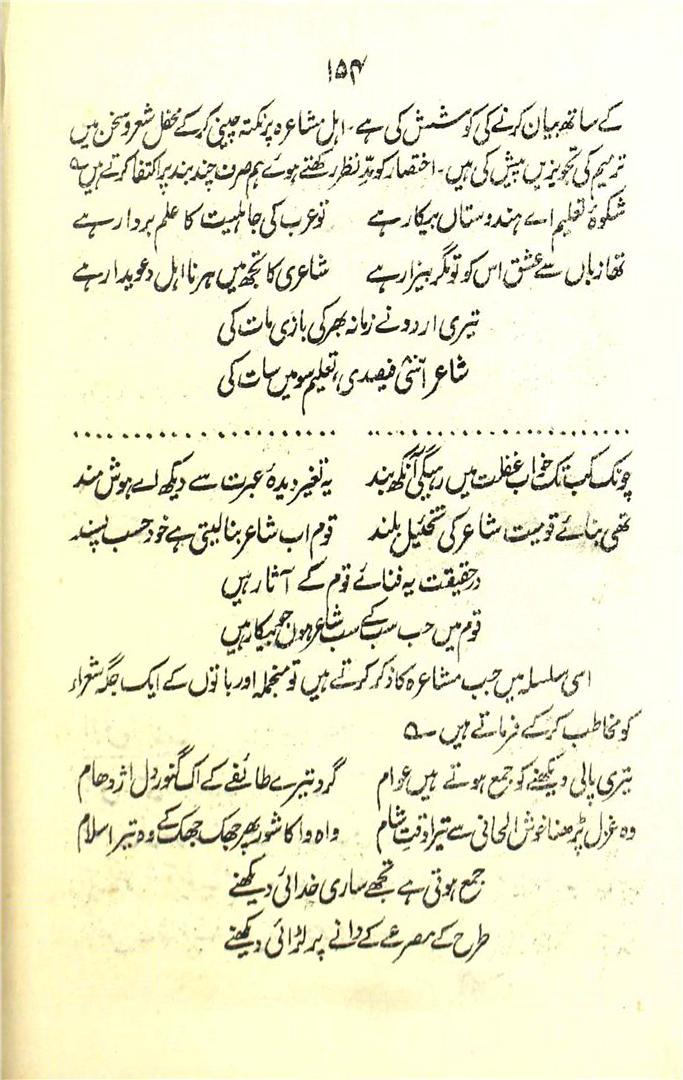 ۱۵۴
کے ساتھ بیان کرنے کی کوشش کی ہے۔ اہل مشاعرہ پر نکتہ چینی کرکے محفل شعر و سخن میں
ترمیم کی تجویزیں پیش کی ہیں۔ اختصار کو مدِّنظر رکھتے ہوئے ہم صرف چند بند پر اکتفا کرتے ہیں ؎
شکوۂ تعلیم اے ہندوستاں بیکار ہے    تو عرب کی جاہلیت کا علم بردار ہے
تھا زباں سے عشق اس کو تو مگر بیزار ہے    شاعری کا تجھ میں ہر نااہل دعویدار ہے
تیری اردو نے زمانہ بھر کی بازی مات کی
شاعر انّشی فیصدی، تعلیم سو میں سات کی
چونک کب تک خواب غفلت میں رہیگی آنکھ بند    یہ تغیر دیدۂ عبرت سے دیکھ اے ہوش مند
تھی بنائے قومیت شاعر کی تخئیل بلند    قوم اب شاعر بنا لیتی ہے خود حسب پسند
درحقیقت یہ فنائے قوم کے آثار ہیں
قوم میں جب سب کے سب شاعر ہوں جو بیکار ہیں
اسی سلسلہ میں جب مشاعرہ کا ذکر کرتے ہیں تو منجملہ اور باتوں کے ایک جگہ شعراء
کو مخاطب کرکے فرماتے ہیں ؎
تیری پالی دیکھنے کو جمع ہوتے ہیں عوام    گرد تیرے طائفے کے اک گنور دل اژدھام
وہ غزل پڑھنا خوش الحانی سے تیرا وقتِ شام    واہ وا کا شور پھر جھک جھک کے وہ تیرا سلام
جمع ہوتی ہے تجھے ساری خدائی دیکھنے
طرح کے مصرعے کے دانے پر لڑائی دیکھنے